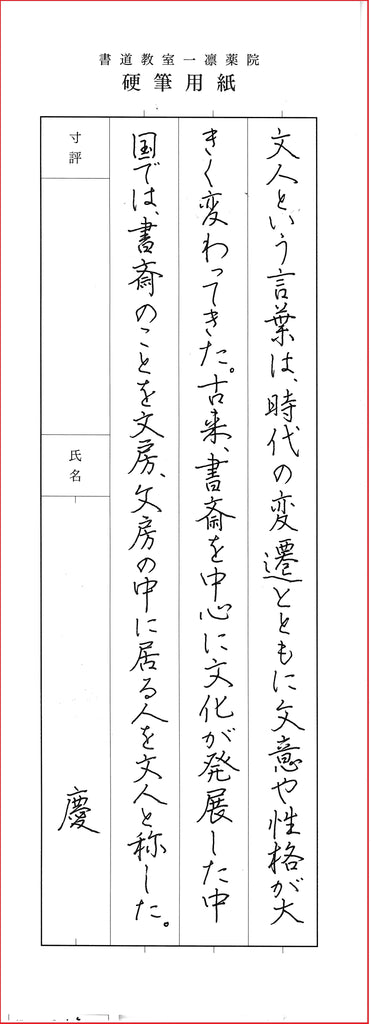 書道教室一凛薬院
硬筆用紙
文人という言葉は、時代の変遷とともに文意や性格が大
きく変わってきた。古来、書斎を中心に文化が発展した中
国では、書斎のことを文房、文房の中に居る人を文人と称した。
寸評
氏名
慶